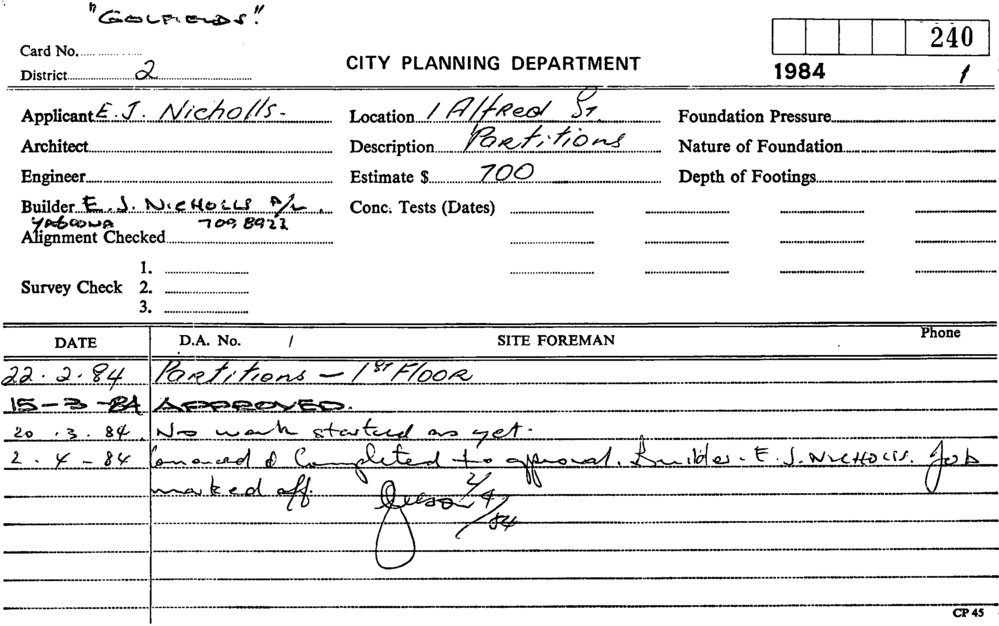 "GOLFIELDS".
Card No.
240
District 2
CITY PLANNING DEPARTMENT
1984 1
Applicant E. J. Nicholls. Location 1 Alfred St Foundation Pressure
Architect Description Partitions Nature of Foundation
Engineer Estimate $ 700 Depth of Footings
Builder E. J. NICHOLLS P/L. Conc. Tests (Dates)
YAGOONA 709 8922
Alignment Checked
1.
Survey Check 2.
3.
DATE D.A. No. / SITE FOREMAN Phone
22.2.84 Partitions - 1ST FLOOR
15-3-84 APPROVED.
20.3.84. No work started as yet.
2-4-84 & Completed to approval. Builder - E. J. NICHOLLS. Job
marked off. 2/4/84
CP 45